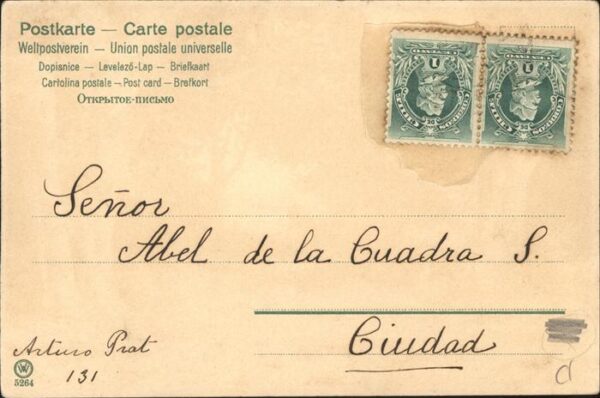 Postkarte — Carte postale
Weltpostverein — Union postale universelle
Dopisnice — Levelező-Lap — Briefkaart
Cartolina postale — Post card — Brefkort
Открытое-письмо
CORREOS DE CHILE
1
CORREOS DE CHILE
1
Señor
Abel de la Cuadra S.
Ciudad
Arturo Prat
131
W
5264